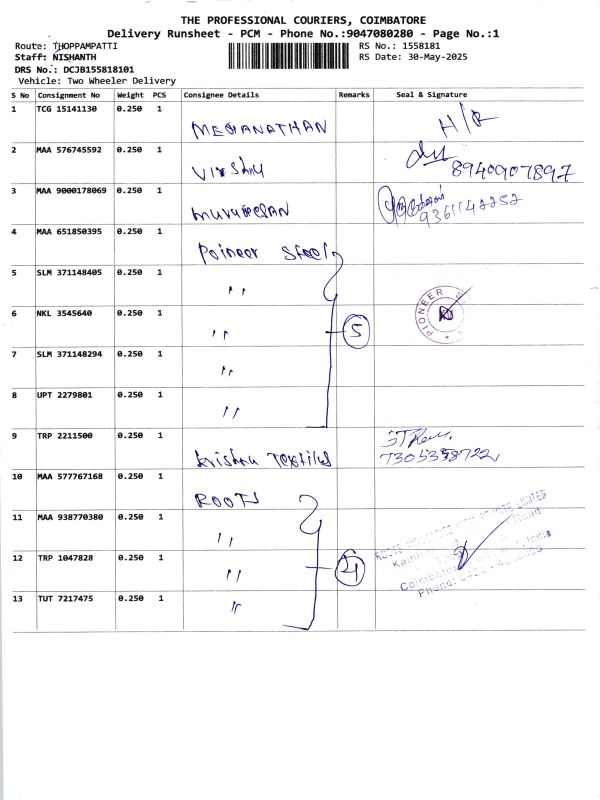 THE PROFESSIONAL COURIERS, COIMBATORE
Delivery Runsheet - PCM - Phone No.:9047080280 - Page No.:1
Route: THOPPAMPATTI RS No.: 1558181
Staff: NISHANTH RS Date: 30-May-2025
DRS No.: DCJB155818101
Vehicle: Two Wheeler Delivery
S No Consignment No Weight PCS Consignee Details Remarks Seal & Signature
1 TCG 15141130 0.250 1 MEGANATHAN H/R
2 MAA 576745592 0.250 1 8940907897
3 MAA 9000178069 0.250 1 MURUGESAN 9361142252
4 MAA 651850395 0.250 1 Poineer Steel
5 SLM 371148405 0.250 1 ''
PIONEER
6 NKL 3545640 0.250 1 '' 5
7 SLM 371148294 0.250 1 ''
8 UPT 2279801 0.250 1 ''
9 TRP 2211500 0.250 1 Krishna Textiles 7305358722
10 MAA 577767168 0.250 1 ROOTS
11 MAA 938770380 0.250 1 ''
12 TRP 1047828 0.250 1 '' 4
Coimbatore
Phone:
13 TUT 7217475 0.250 1 ''